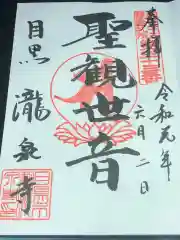 奉拝
令和元年
六月二日
聖観世音
目黒
瀧泉寺